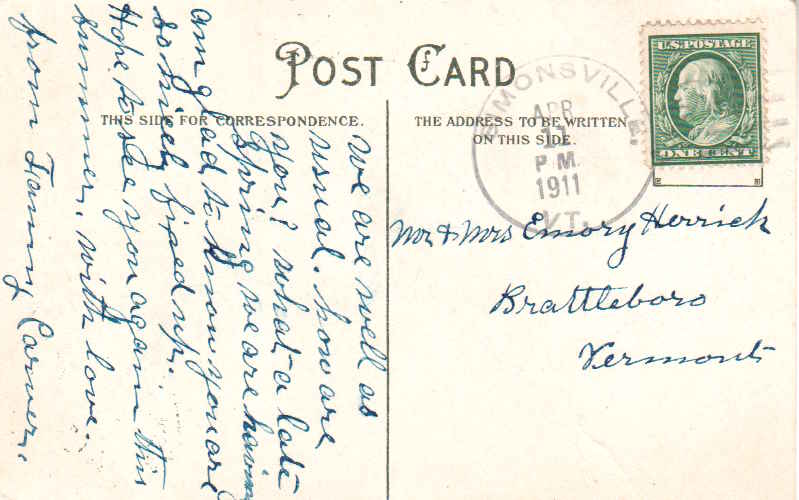 POST CARD
THIS SIDE FOR CORRESPONDENCE.
THE ADDRESS TO BE WRITTEN
ON THIS SIDE.
SIMONSVILLE
APR
11
P.M.
1911
VT.
U.S. POSTAGE
ONE CENT
Mr & Mrs Emory Herrick
Brattleboro
Vermont
We are well as
usual. how are
you? what a late
spring we are having
am glad to know you are
so nicely fixed up.
Hope to see you again this
summer. with love.
from Fanny Carver.